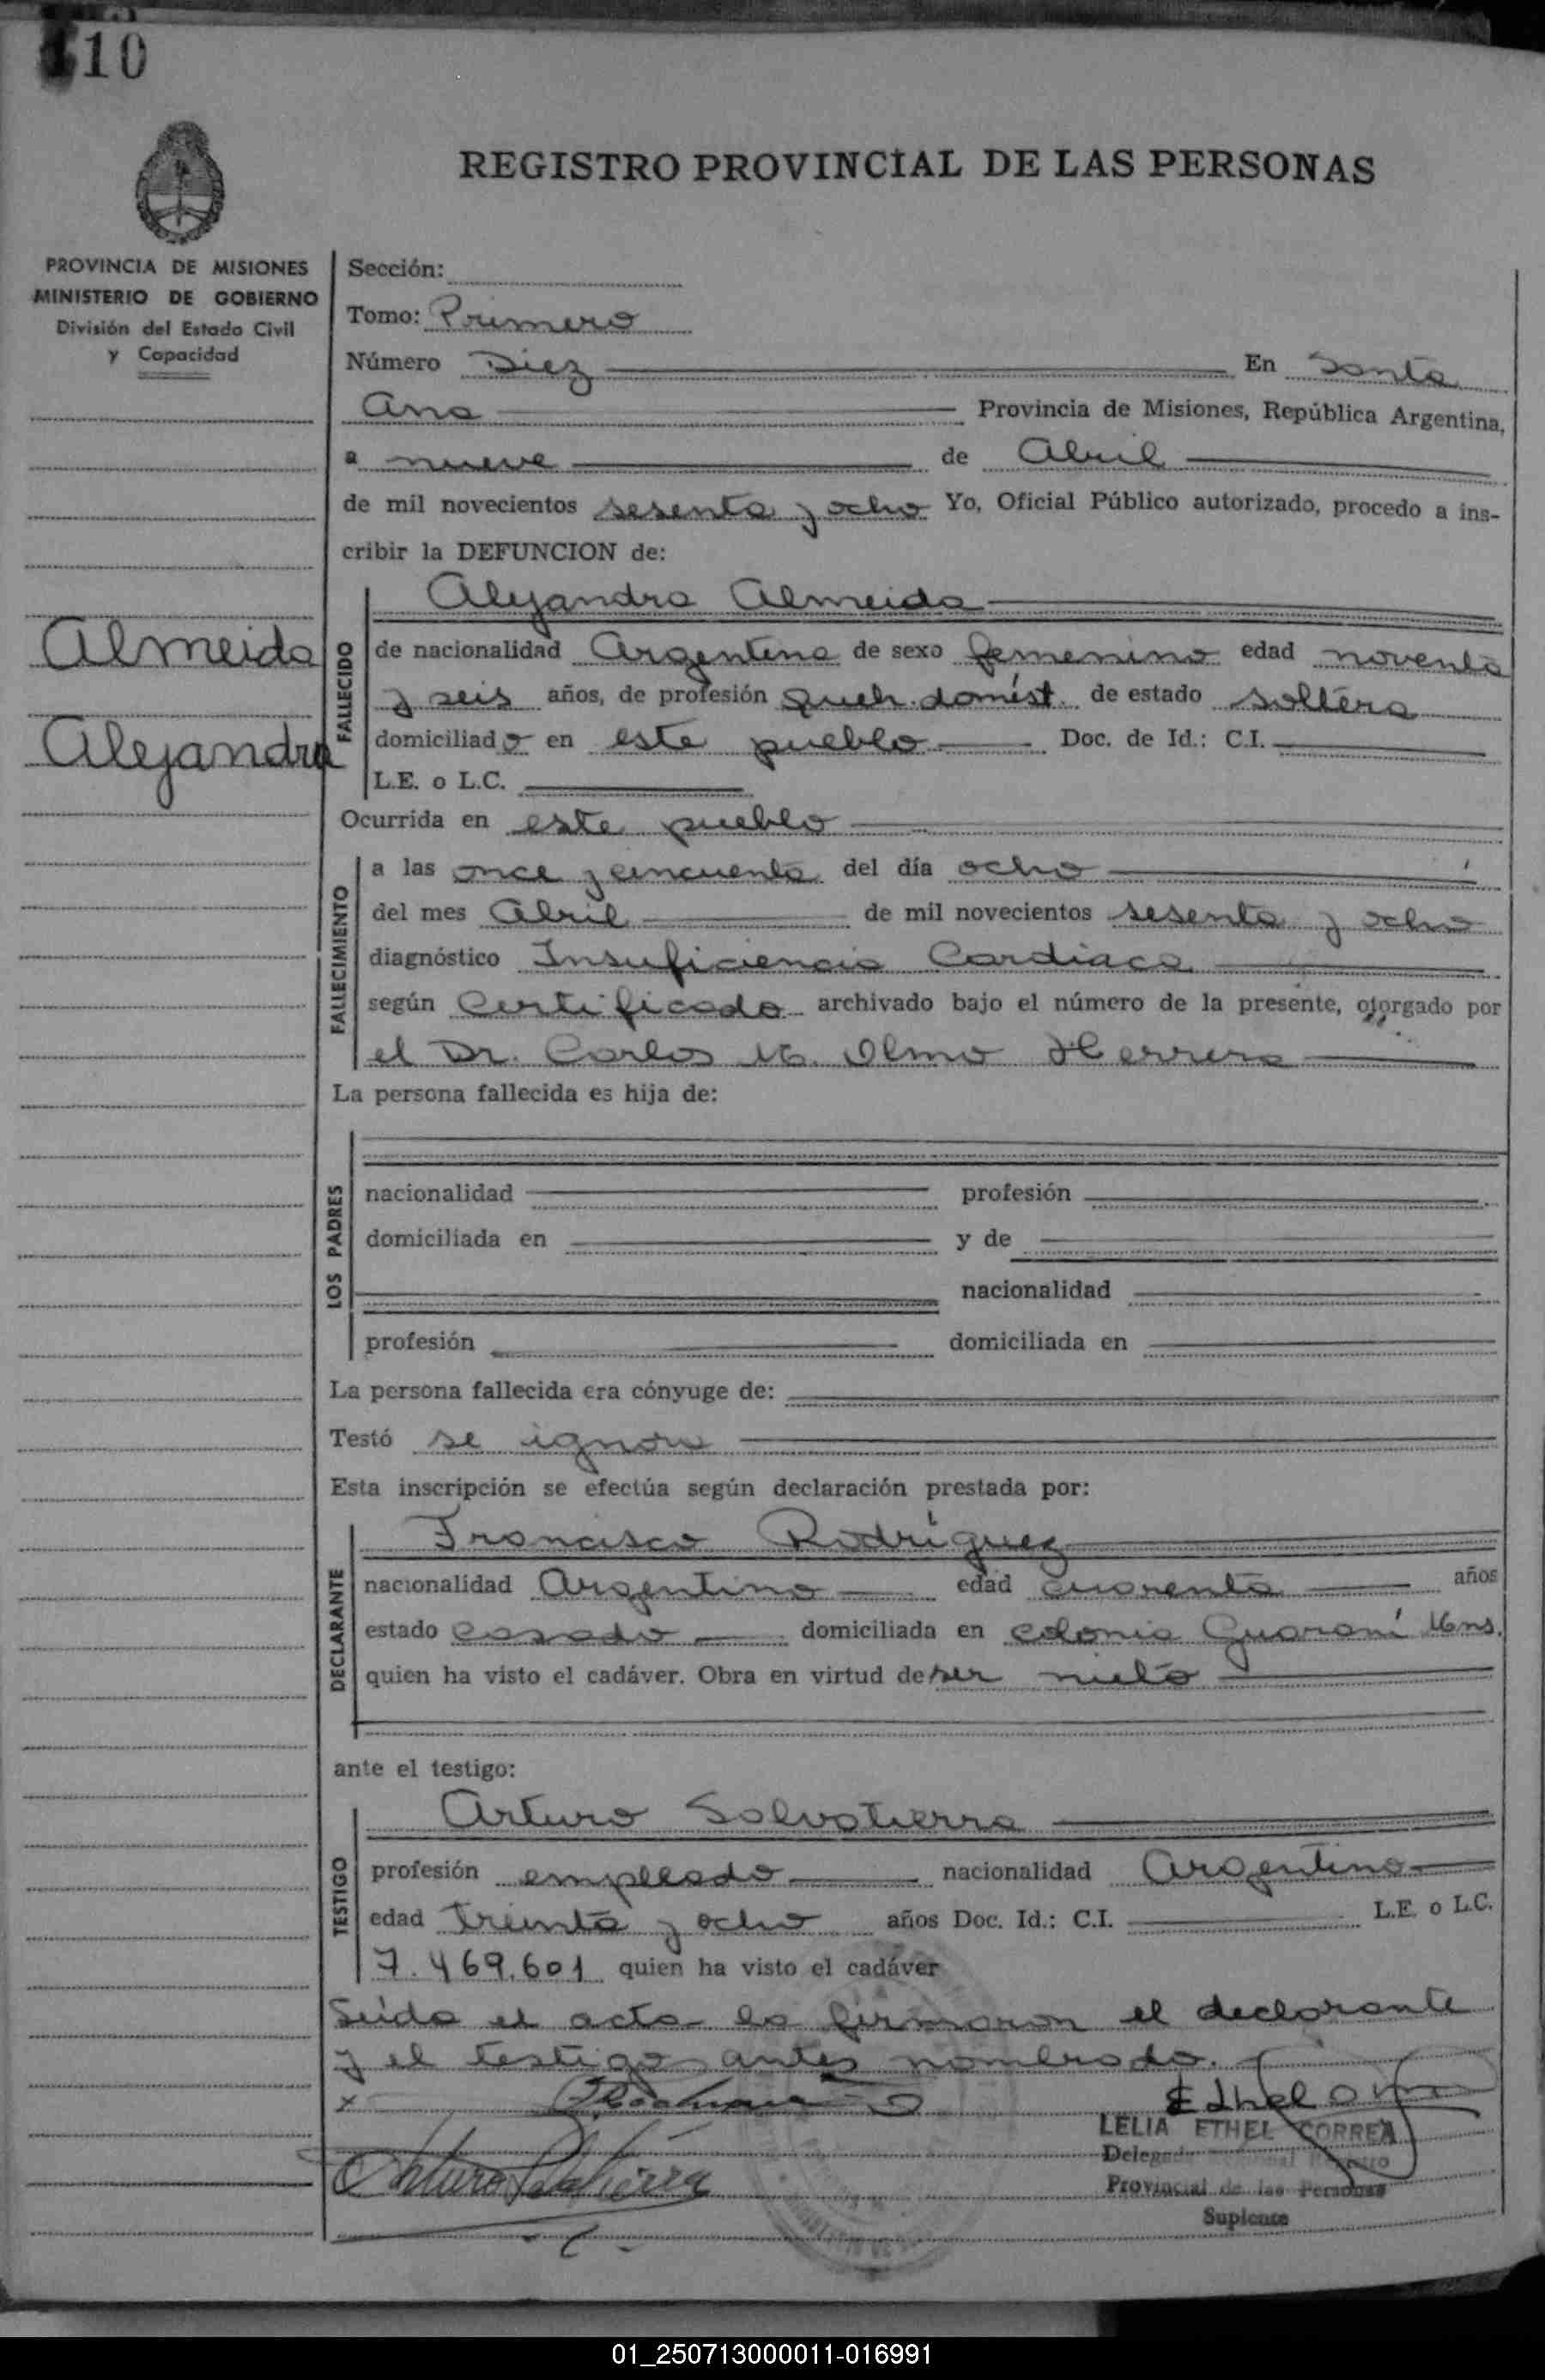 10
REGISTRO PROVINCIAL DE LAS PERSONAS
PROVINCIA DE MISIONES
MINISTERIO DE GOBIERNO
División del Estado Civil
y Capacidad
Almeida
Alejandra
Sección:
Tomo: Primero
Número Diez En Santa
Ana Provincia de Misiones, República Argentina,
a nueve de Abril
de mil novecientos sesenta y ocho Yo, Oficial Público autorizado, procedo a ins-
cribir la DEFUNCION de:
FALLECIDO
Alejandra Almeida
de nacionalidad Argentina de sexo femenino edad noventa
y seis años, de profesión queh. domést. de estado soltera
domiciliado en este pueblo Doc. de Id.: C.I.
L.E. o L.C.
Ocurrida en este pueblo
FALLECIMIENTO
a las once y cincuenta del día ocho
del mes Abril de mil novecientos sesenta y ocho
diagnóstico Insuficiencia Cardíaca
según Certificado archivado bajo el número de la presente, otorgado por
el Dr. Carlos M. Olmo Herrera
La persona fallecida es hija de:
LOS PADRES
nacionalidad profesión
domiciliada en y de
nacionalidad
profesión domiciliada en
La persona fallecida era cónyuge de:
Testó se ignora
Esta inscripción se efectúa según declaración prestada por:
DECLARANTE
Francisco Rodríguez
nacionalidad Argentino edad cuarenta años
estado casado domiciliada en colonia Guaraní Mns.
quien ha visto el cadáver. Obra en virtud de ser nieto
ante el testigo:
TESTIGO
Arturo Salvatierra
profesión empleado nacionalidad Argentino
edad treinta y ocho años Doc. Id.: C.I. L.E. o L.C.
7.469.601 quien ha visto el cadáver
Leída el acta la firmaron el declarante
y el testigo antes nombrado.
x
LELIA ETHEL CORREA
Arturo Salvatierra
Delegada Registro
Provincial de las Personas
Suplente
01_250713000011-016991